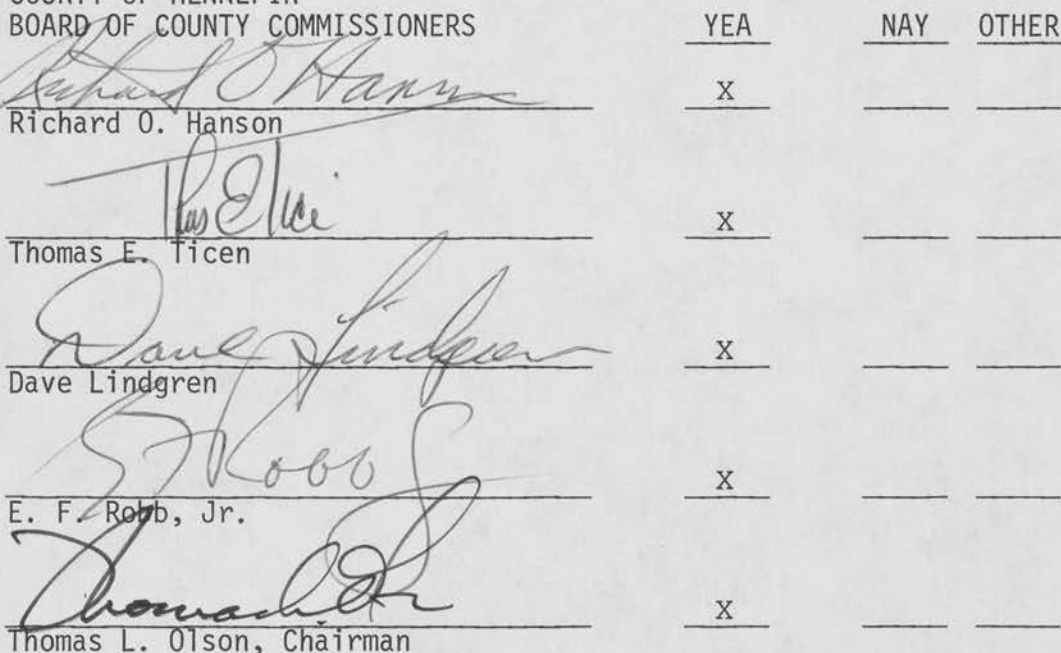 BOARD OF COUNTY COMMISSIONERS YEA NAY OTHER
Richard O Hanson X
Richard O. Hanson
Thos E Ticen X
Thomas E. Ticen
Dave Lindgren X
Dave Lindgren
E F Robb Jr X
E. F. Robb, Jr.
Thomas L Olson X
Thomas L. Olson, Chairman